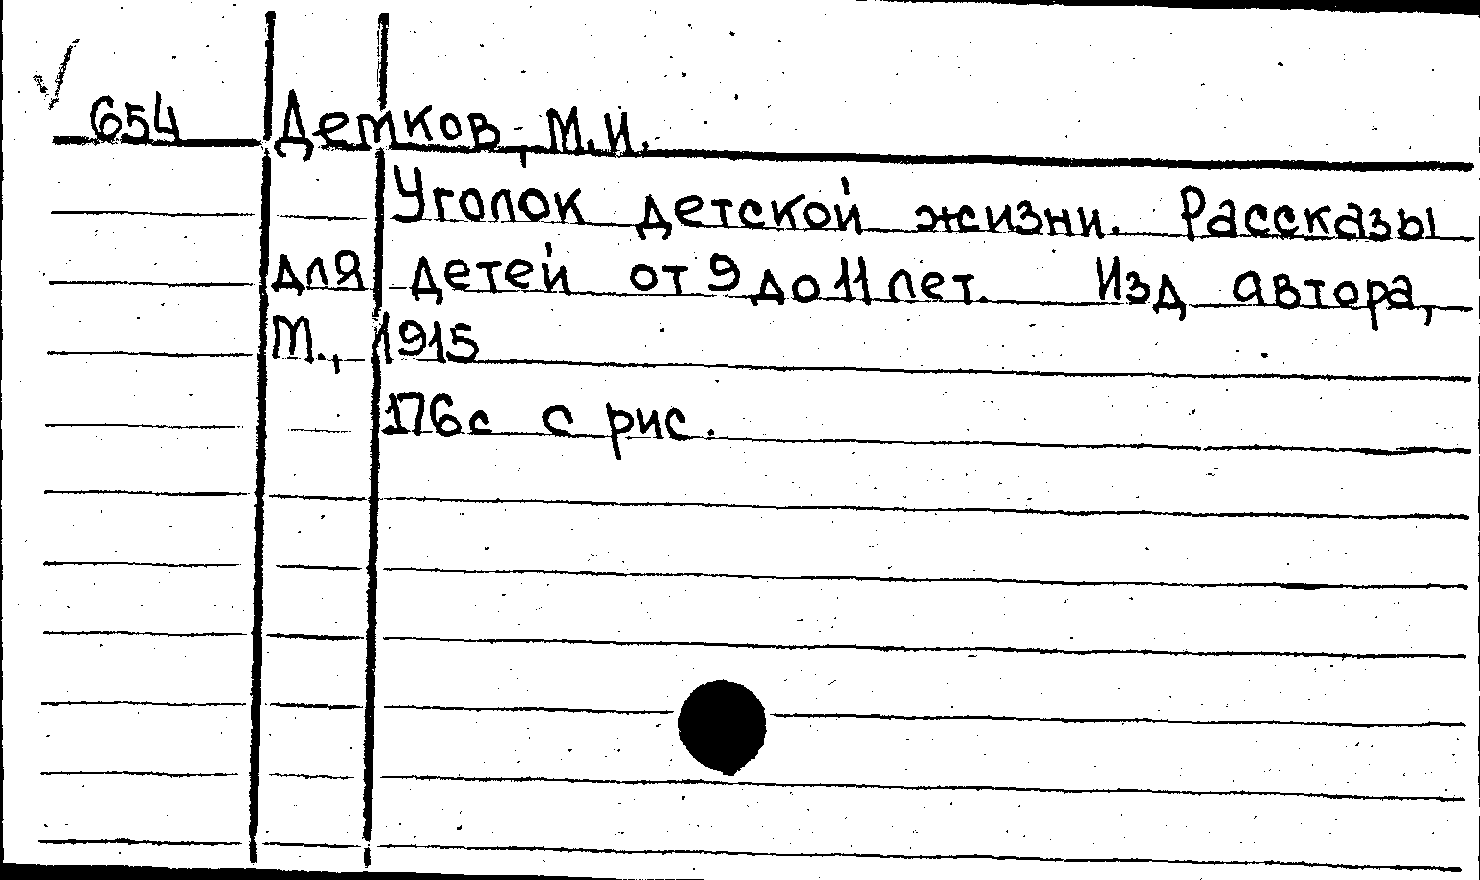 654 Детков, М.И.
Уголок детской жизни. Рассказы
для детей от 9 до 11 лет. Изд автора,
М., 1915
176с с рис.